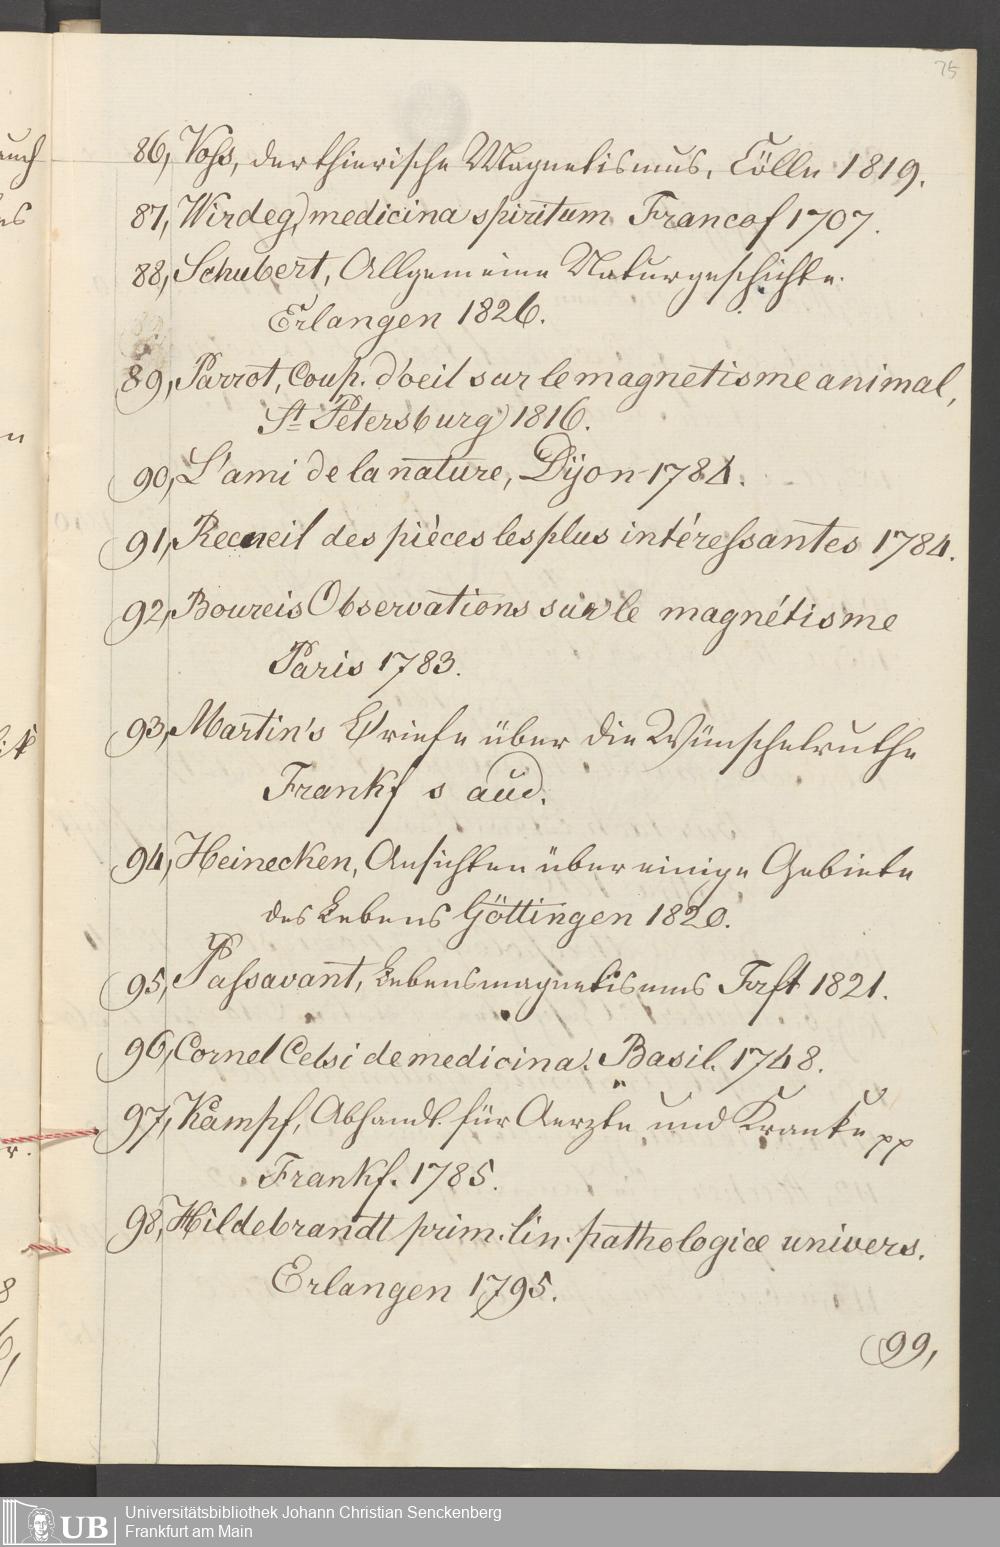 75
86, Voß, der thierische Magnetismus, Cölln 1819.
87, Wirdeg, medicina spiritum Francof 1707.
88, Schubert, Allgemeine Naturgeschichte.
Erlangen 1826.
89, Parrot, Coup. d'oeil sur le magnetisme animal,
St Petersburg 1816.
90, L'ami de la nature, Dijon 1784.
91, Recueil des pièces les plus intéreßantes 1784.
92, Boureis Observations sur le magnétisme
Paris 1783.
93, Martin's Briefe über die Wünschelruthe
Frankf s aud.
94, Heinecken, Ansichten über einige Gebiete
des Lebens Göttingen 1820.
95, Paßavant, Lebensmagnetismus Frft 1821.
96, Cornel Celsi de medicina. Basil. 1748.
97, Kämpf, Abhandl. für Aerzte und Kranke pp
Frankf. 1785.
98, Hildebrandt prim. lin. pathologicæ univers.
Erlangen 1795.
99,
Universitätsbibliothek Johann Christian Senckenberg
Frankfurt am Main
UB